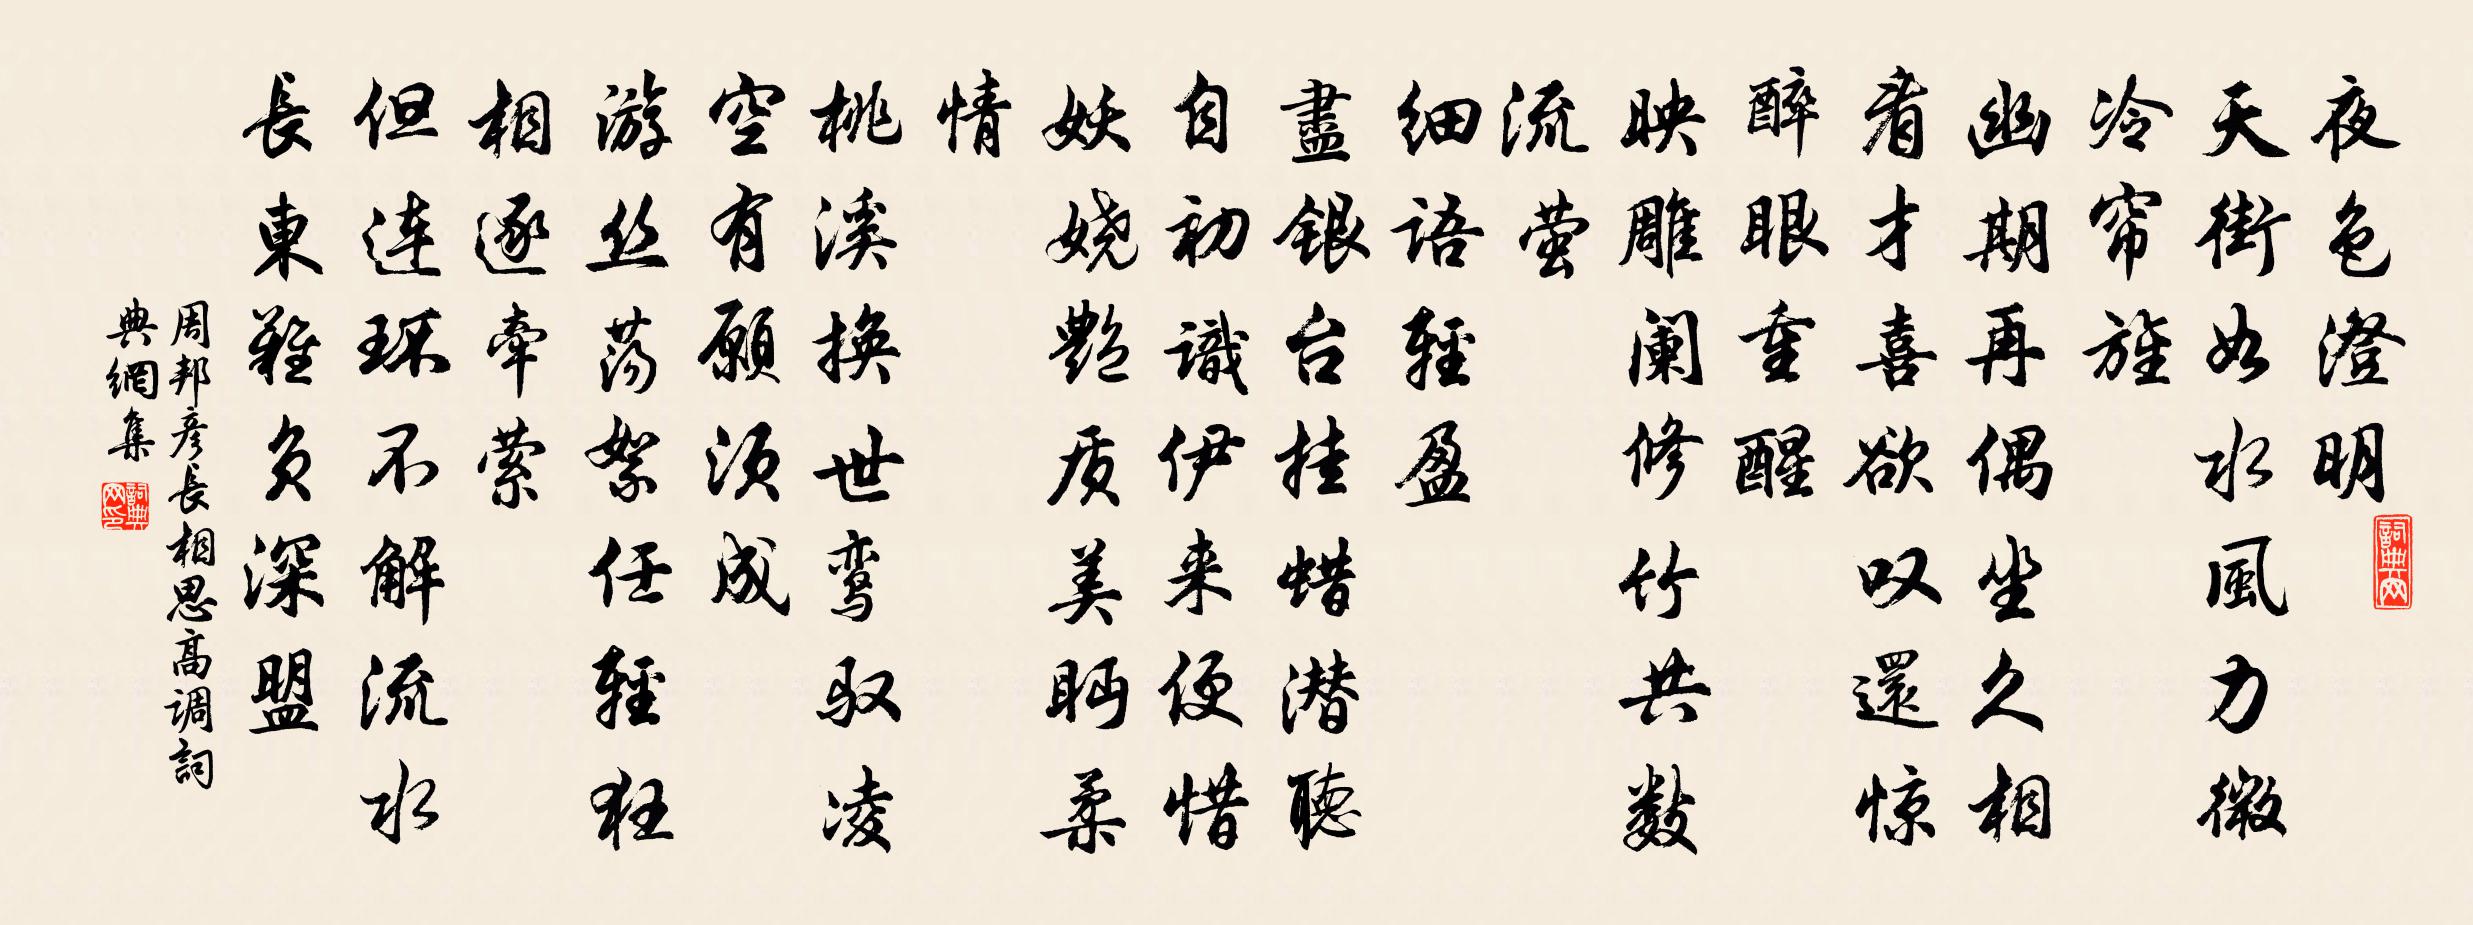 夜色澄明
詞典网
天街如水風力微
冷帘旌
幽期再偶坐久相
看才喜欲叹還惊
醉眼重醒
映雕阑修竹共数
流萤
细语輕盈
盡银台挂蜡潜聽
自初識伊来便惜
妖娆艷质美眄柔
情
桃溪换世鸾驭凌
空有願须成
游丝荡絮任輕狂
相逐牵萦
但連环不解流水
長東難负深盟
周邦彦長相思高调詞
典網集
詞典网印